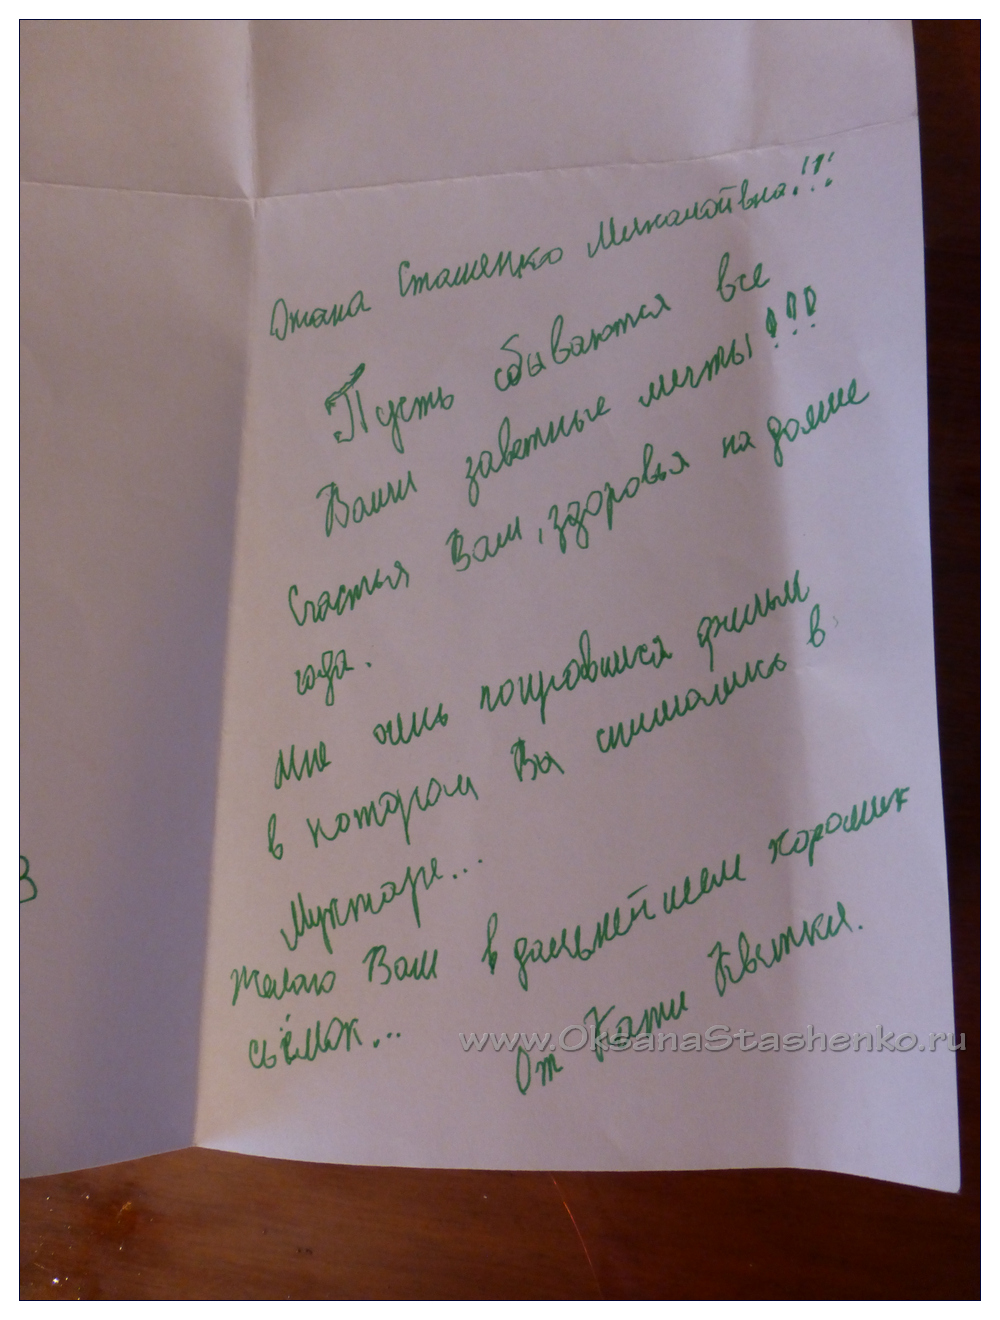 Оксана Сташенко Михайловна!!!
Пусть сбываются все
Ваши заветные мечты!!!
Счастья Вам, здоровья на долгие
года.
Мне очень понравился фильм
в котором Вы снимались в
Мухтаре...
Желаю Вам в дальнейшем хороших
съёмок...
От Кати Квитки.
www.OksanaStashenko.ru
В